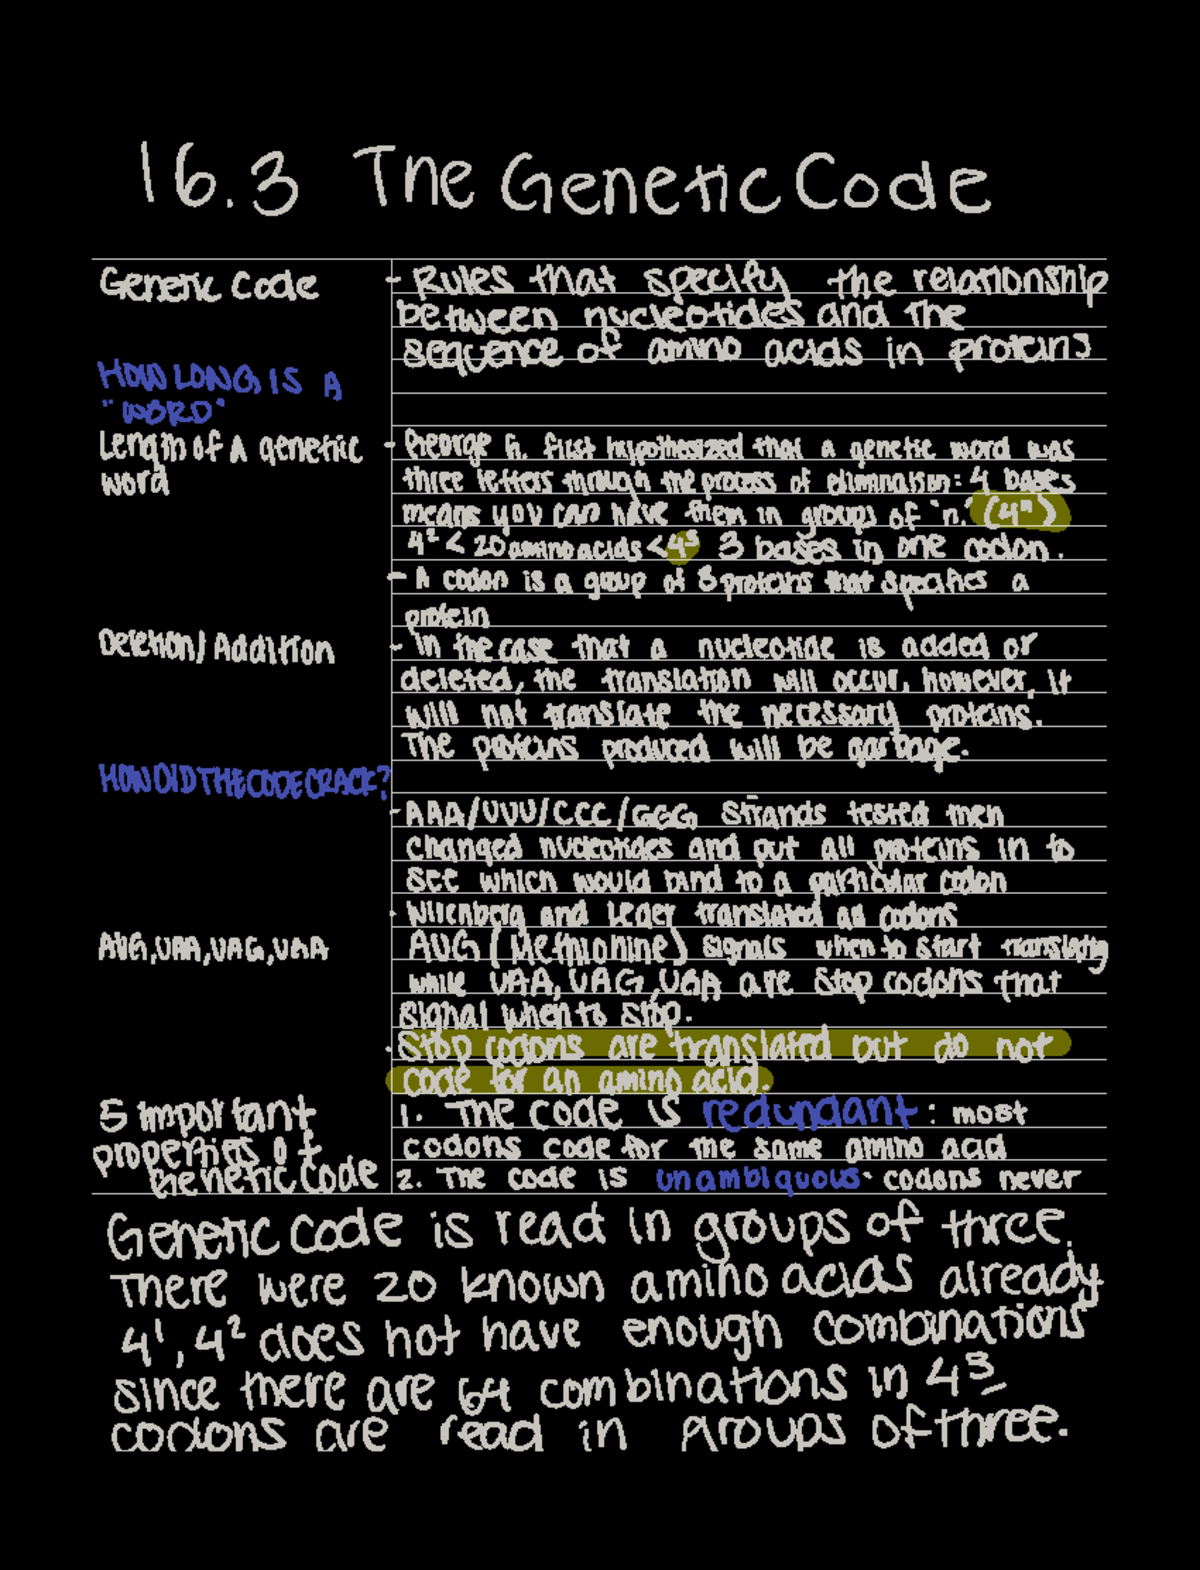 16.3 The Genetic Code
Genetic Code
- Rules that specify the relationship
between nucleotides and the
sequence of amino acids in proteins
HOW LONG IS A
"WORD"
Length of A genetic
word
- George G. first hypothesized that a genetic word was
three letters through the process of elimination: 4 bases
means you can have them in groups of "n." (4ⁿ)
4² < 20 amino acids < 4³ 3 bases in one codon.
- A codon is a group of 3 proteins that specifies a
protein
Deletion/Addition
- In the case that a nucleotide is added or
deleted, the translation will occur, however, it
will not translate the necessary proteins.
The proteins produced will be garbage.
HOW DID THE CODE CRACK?
- AAA/UUU/CCC/GGG strands tested then
changed nucleotides and put all proteins in to
see which would bind to a particular codon
· Nirenberg and Leder translated all codons
AUG, UAA, UAG, UGA
AUG (Methionine) signals when to start translating
while UAA, UAG, UGA are stop codons that
signal when to stop.
· Stop codons are translated but do not
code for an amino acid.
5 important
properties of
Genetic Code
1. The code is redundant: most
codons code for the same amino acid
2. The code is unambiquous· codons never
Genetic code is read in groups of three.
There were 20 known amino acids already
4¹, 4² does not have enough combinations
since there are 64 combinations in 4³
codons are read in groups of three.